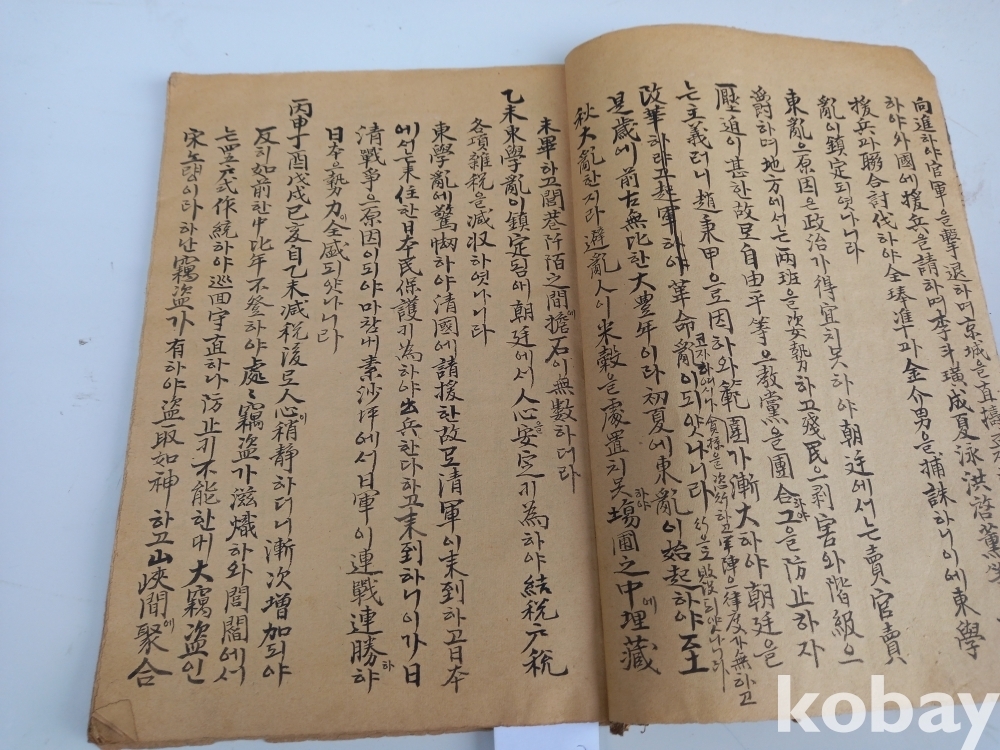 向進하야官軍을擊退하며京城을直擣
하야와國에援兵을請하며李斗璜成夏泳洪
援兵과聯合討代하야全琫準과金介男을捕誅하니이에東學
亂이鎮定되엿나니라
東亂으原因은政治가得宜치못하야朝廷에서는賣官賣
爵하며地方에서는兩班을姿勢하고殘民으剥害와階級으
壓迫이甚한故로自由平等으敎黨을團合하야그을防止하자
는主義터니趙秉甲으로因하와範圍가漸大하야朝廷을
改華하랴고起軍하야革命亂이되얏나니라
軍陣으律度가無하고
是歲에前古無比한大豊年이라初夏에東亂이始起하야至
秋大亂한지라避亂人이米穀을處置치못하야場圃之中에埋藏
未畢하고閭巷阡陌之間에擔石이無數하더라
乙未東學亂이鎮定됨애朝廷에서人心을安定키為하야結稅戶稅
各項雜稅을減收하엿나니라
東學亂에驚㤼하야清國에請援한故로清軍이来到하고日本
에선는来住한日本民保護키為하야出兵한다하고来到하니이가日
清戰爭으原因이되야마참내素沙坪에서日軍이連戰連勝하야
日本으勢力이全盛되얏나니라
丙申丁酉戊戌己亥自乙未减稅後로人心이稍静하더니漸次增加되야
反히如前한中比年不登하야處〻竊盜가滋熾하와閭閻에서
는四五六式作統하야巡回守直하나防止키不能한대大竊盜인
宋노량이다하난竊盜가有하야盜取如神하고山峽間에聚合
kobay